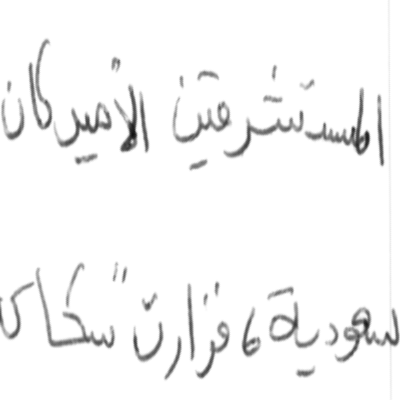 المستشرقين الأميركان
سعودية، فزارت "سكاكا